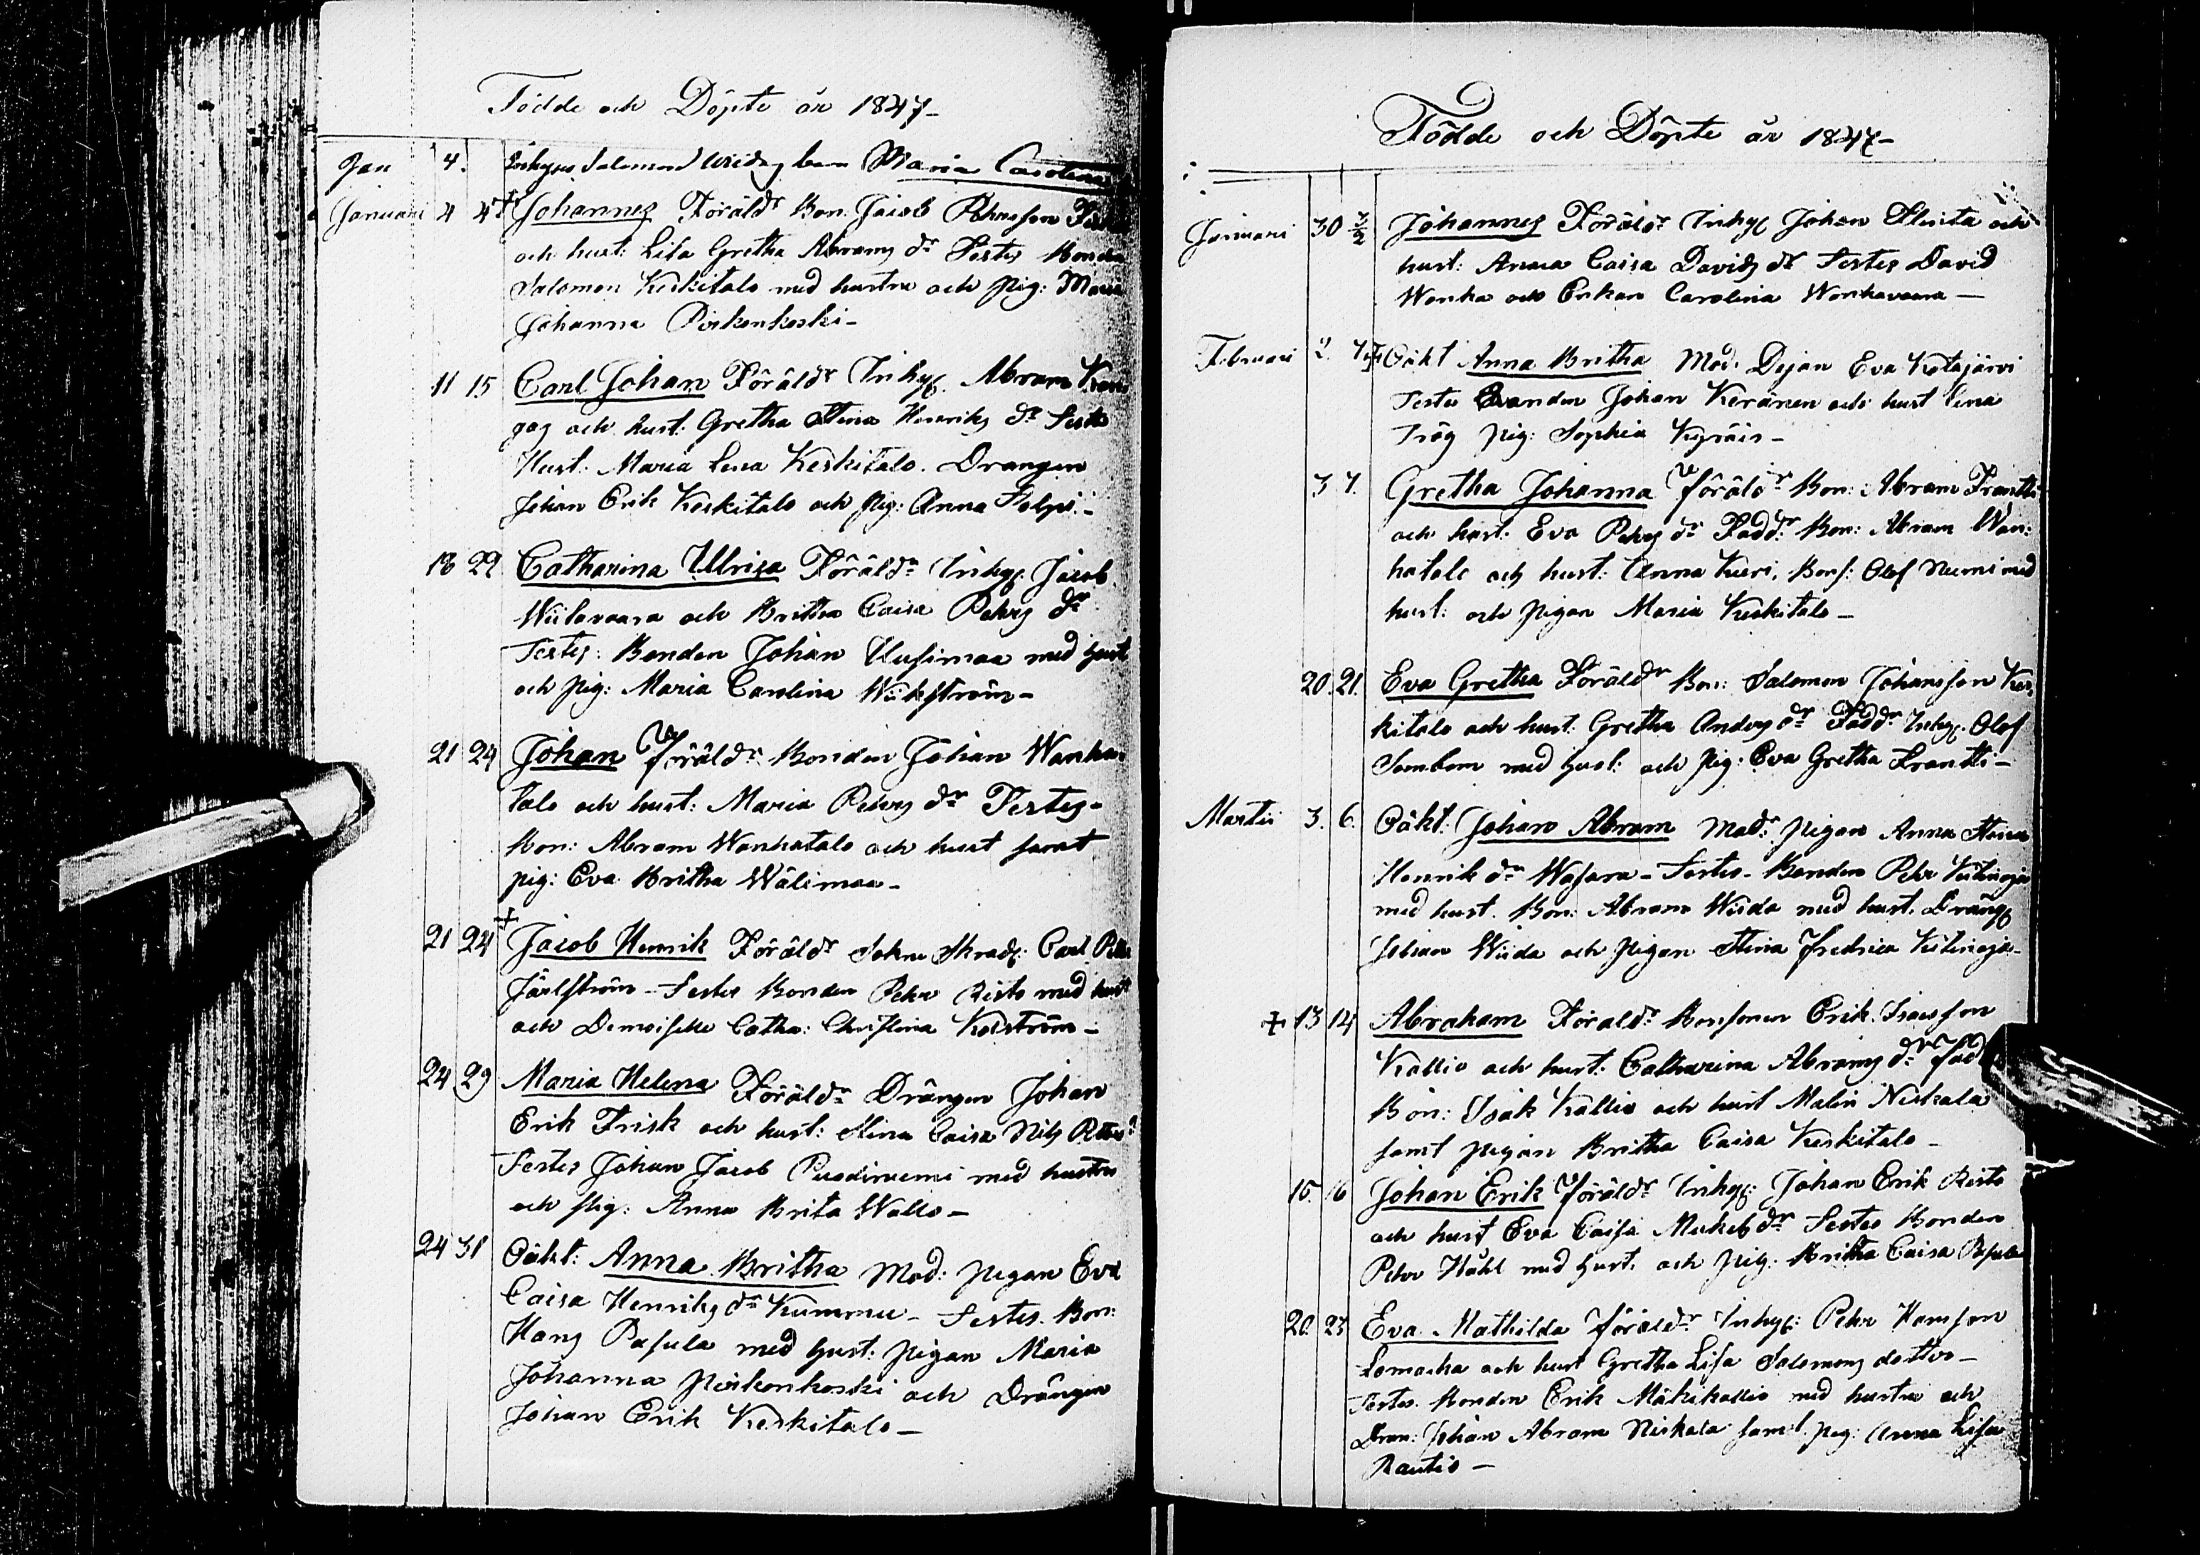 Födde och Döpte år 1847-
Jan 4. Inhyses Salomon barn Maria Carolina
Januari 4 4 + Johannes Föräldr Bon: Jacob Pehrsson
och hust: Lisa Gretha Abrams dr Testes Bonden
Salomon Keskitalo med hustru och pig: Maria
Johanna Pirkonkoski-
11 15 Carl Johan Föräldr Inhys: Abram Kan
gas och hust: Gretha Stina Henriks dr Testes
Hust: Maria Lena Keskitalo. Drängen
Johan Erik Keskitalo och pig: Anna
18 22 Catharina Ulrica Föräldr Inhys: Jacob
Wiilavaara och Britha Caisa Pehrs dr
Testes: Bonden Johan Uusimaa med hust
och pig: Maria Carolina Wickström-
21 24 Johan Föräldr Bonden Johan Wanha-
talo och hust: Maria Pehrs dr Testes-
Bon: Abram Wanhatalo och hust samt
pig: Eva Britha Wälimaa-
21 24 + Jacob Henrik Föräldr Sokne Skradd: Carl
Järlström- Testes Bonden Pehr Risto med hust
och Demoiselle Catha: Christina
24 29 Maria Helena Föräldr Drängen Johan
Erik Frisk och hust: Stina Caisa Nils
Testes Johan Jacob med hustru
och pig: Anna Brita Wallo-
24 31 Oäkt: Anna Britha Mod: pigan Eva
Caisa Henriks dr Kummu- Testes. Bon:
Hans Pasula med hust: pigan Maria
Johanna Pirkonkoski och Drängen
Johan Erik Keskitalo-
Födde och Döpte år 1847-
Januari 30 7/2 Johannes Föräldr Inhys Johan och
hust: Anna Caisa Davids dr Testes David
Wonka och Enkan Carolina Wonkavaara-
Februari 2. 7 + Oäkt Anna Britha Mod: Dejan Eva Kotajärvi
Testes Bonden Johan Keränen och hust Lena
pig: Sophia
3 7. Gretha Johanna föräldr Bon: Abram Frantti
och hust: Eva Pehrs dr Fadd: Bon: Abram Wan-
hatalo och hust: Anna Kuri, Bons: Olof Nurmi med
hust: och pigan Maria Keskitalo-
20. 21. Eva Gretha Föräldr Bon: Salomon Johansson Kes-
kitalo och hust. Gretha Anders dr Faddr Inhys: Olof
Sombom med hust: och pig: Eva Gretha Frantti-
Martii 3. 6. Oäkt: Johan Abram Modr: pigan Anna Stina
Henrik dr Wasara- Testes- Bonden Pehr Kitinoja
med hust. Bon: Abram Wiida med hust. Dräng
Johan Wiida och pigan Stina Fredrica Kitinoja-
+ 13 14 Abraham Föräldr Bonsonen Erik Isacsson
Kallio och hust: Catharina Abrams dr Fad
Bon: Isak Kallio och hust Malin Niskala
samt pigan Britha Caisa Keskitalo-
15. 16 Johan Erik föräldr Inhys: Johan Erik Risto
och hust Eva Caisa Mickels dr Testes Bonden
Pehr Håhl med hust: och pig: Britha Caisa Pasula
20. 23 Eva Mathilda föräldr Inhys: Pehr Hansson
Lomacka och hust Gretha Lisa Salomons dotter-
Testes. Bonden Erik Mäkikallio med hustru och
Drän: Johan Abram Niskala samt pig: Anna Lisa
Rautio-